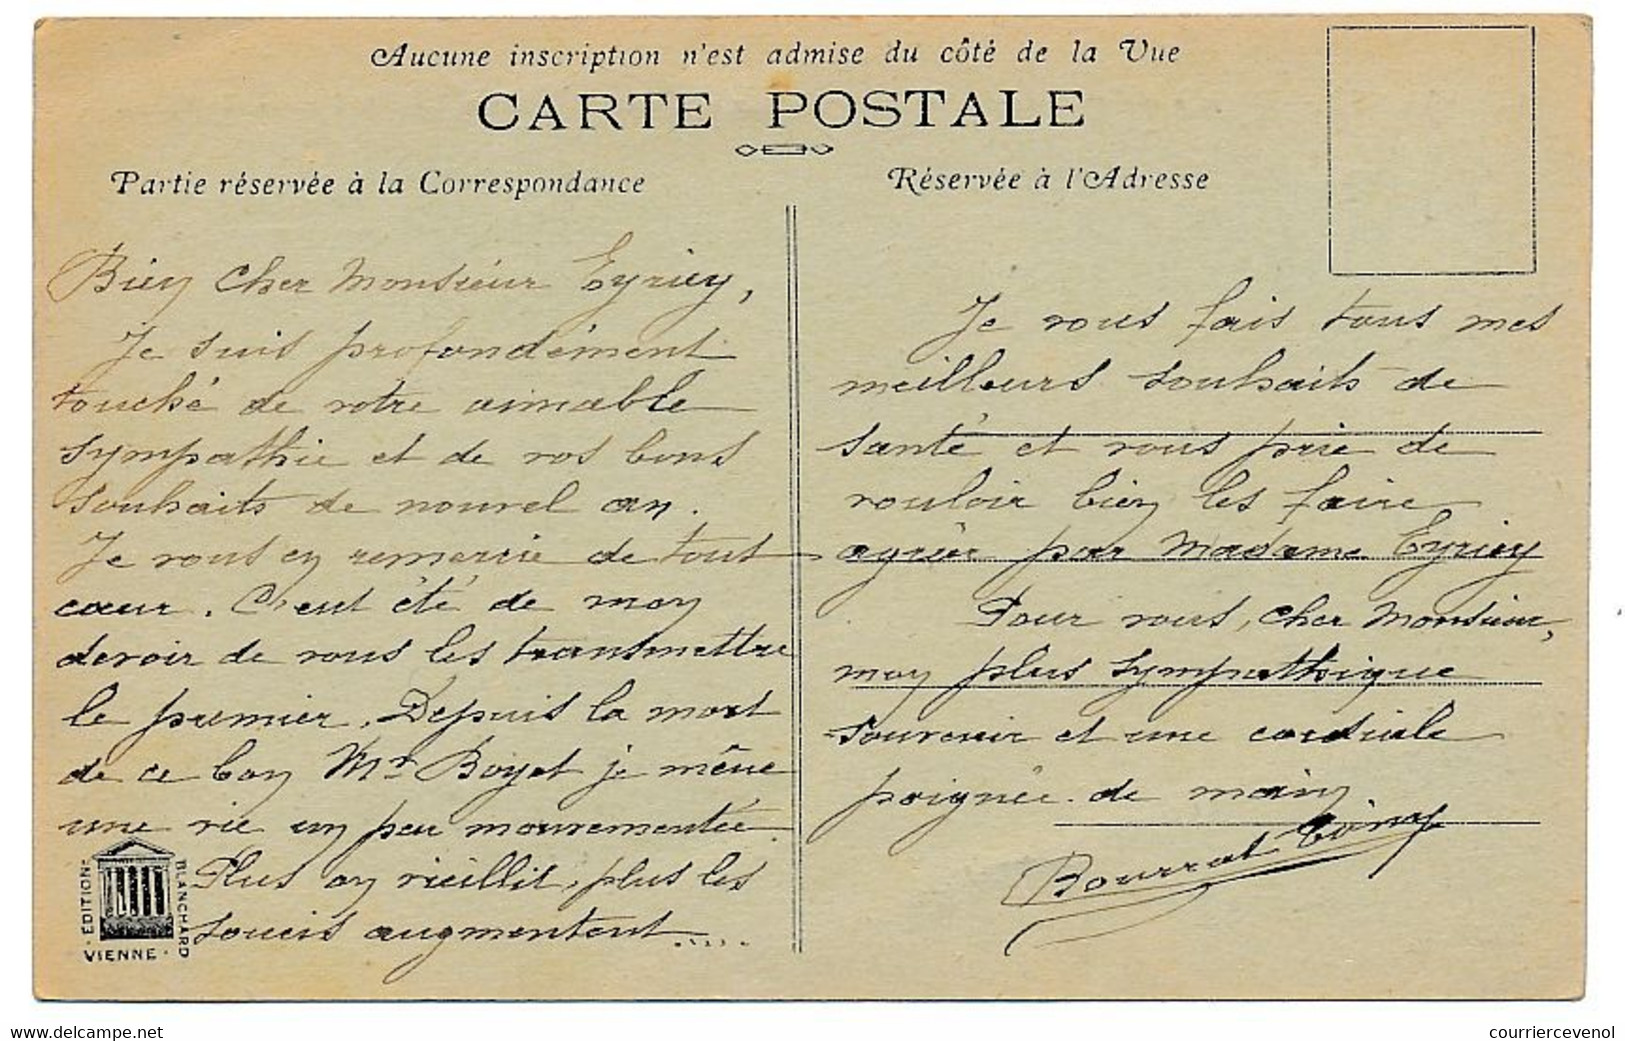 Aucune inscription n'est admise du côté de la Vue
CARTE POSTALE
Partie réservée à la Correspondance
Réservée à l'Adresse
Bien cher Monsieur Eyriey,
Je suis profondément
touché de votre aimable
sympathie et de vos bons
souhaits de nouvel an.
Je vous en remercie de tout
cœur. C'eut été de mon
devoir de vous les transmettre
le premier. Depuis la mort
de ce bon Mr Boyet je mène
une vie un peu mouvementée
Plus on vieillit, plus les
soucis augmentent......
Je vous fais tous mes
meilleurs souhaits de
santé et vous prie de
vouloir bien les faire
agréer par Madame Eyriey
Pour vous, cher Monsieur,
mon plus sympathique
souvenir et une cordiale
poignée de main
Bourrat
EDITION BLANCHARD
VIENNE
www.delcampe.net
courriercevenol